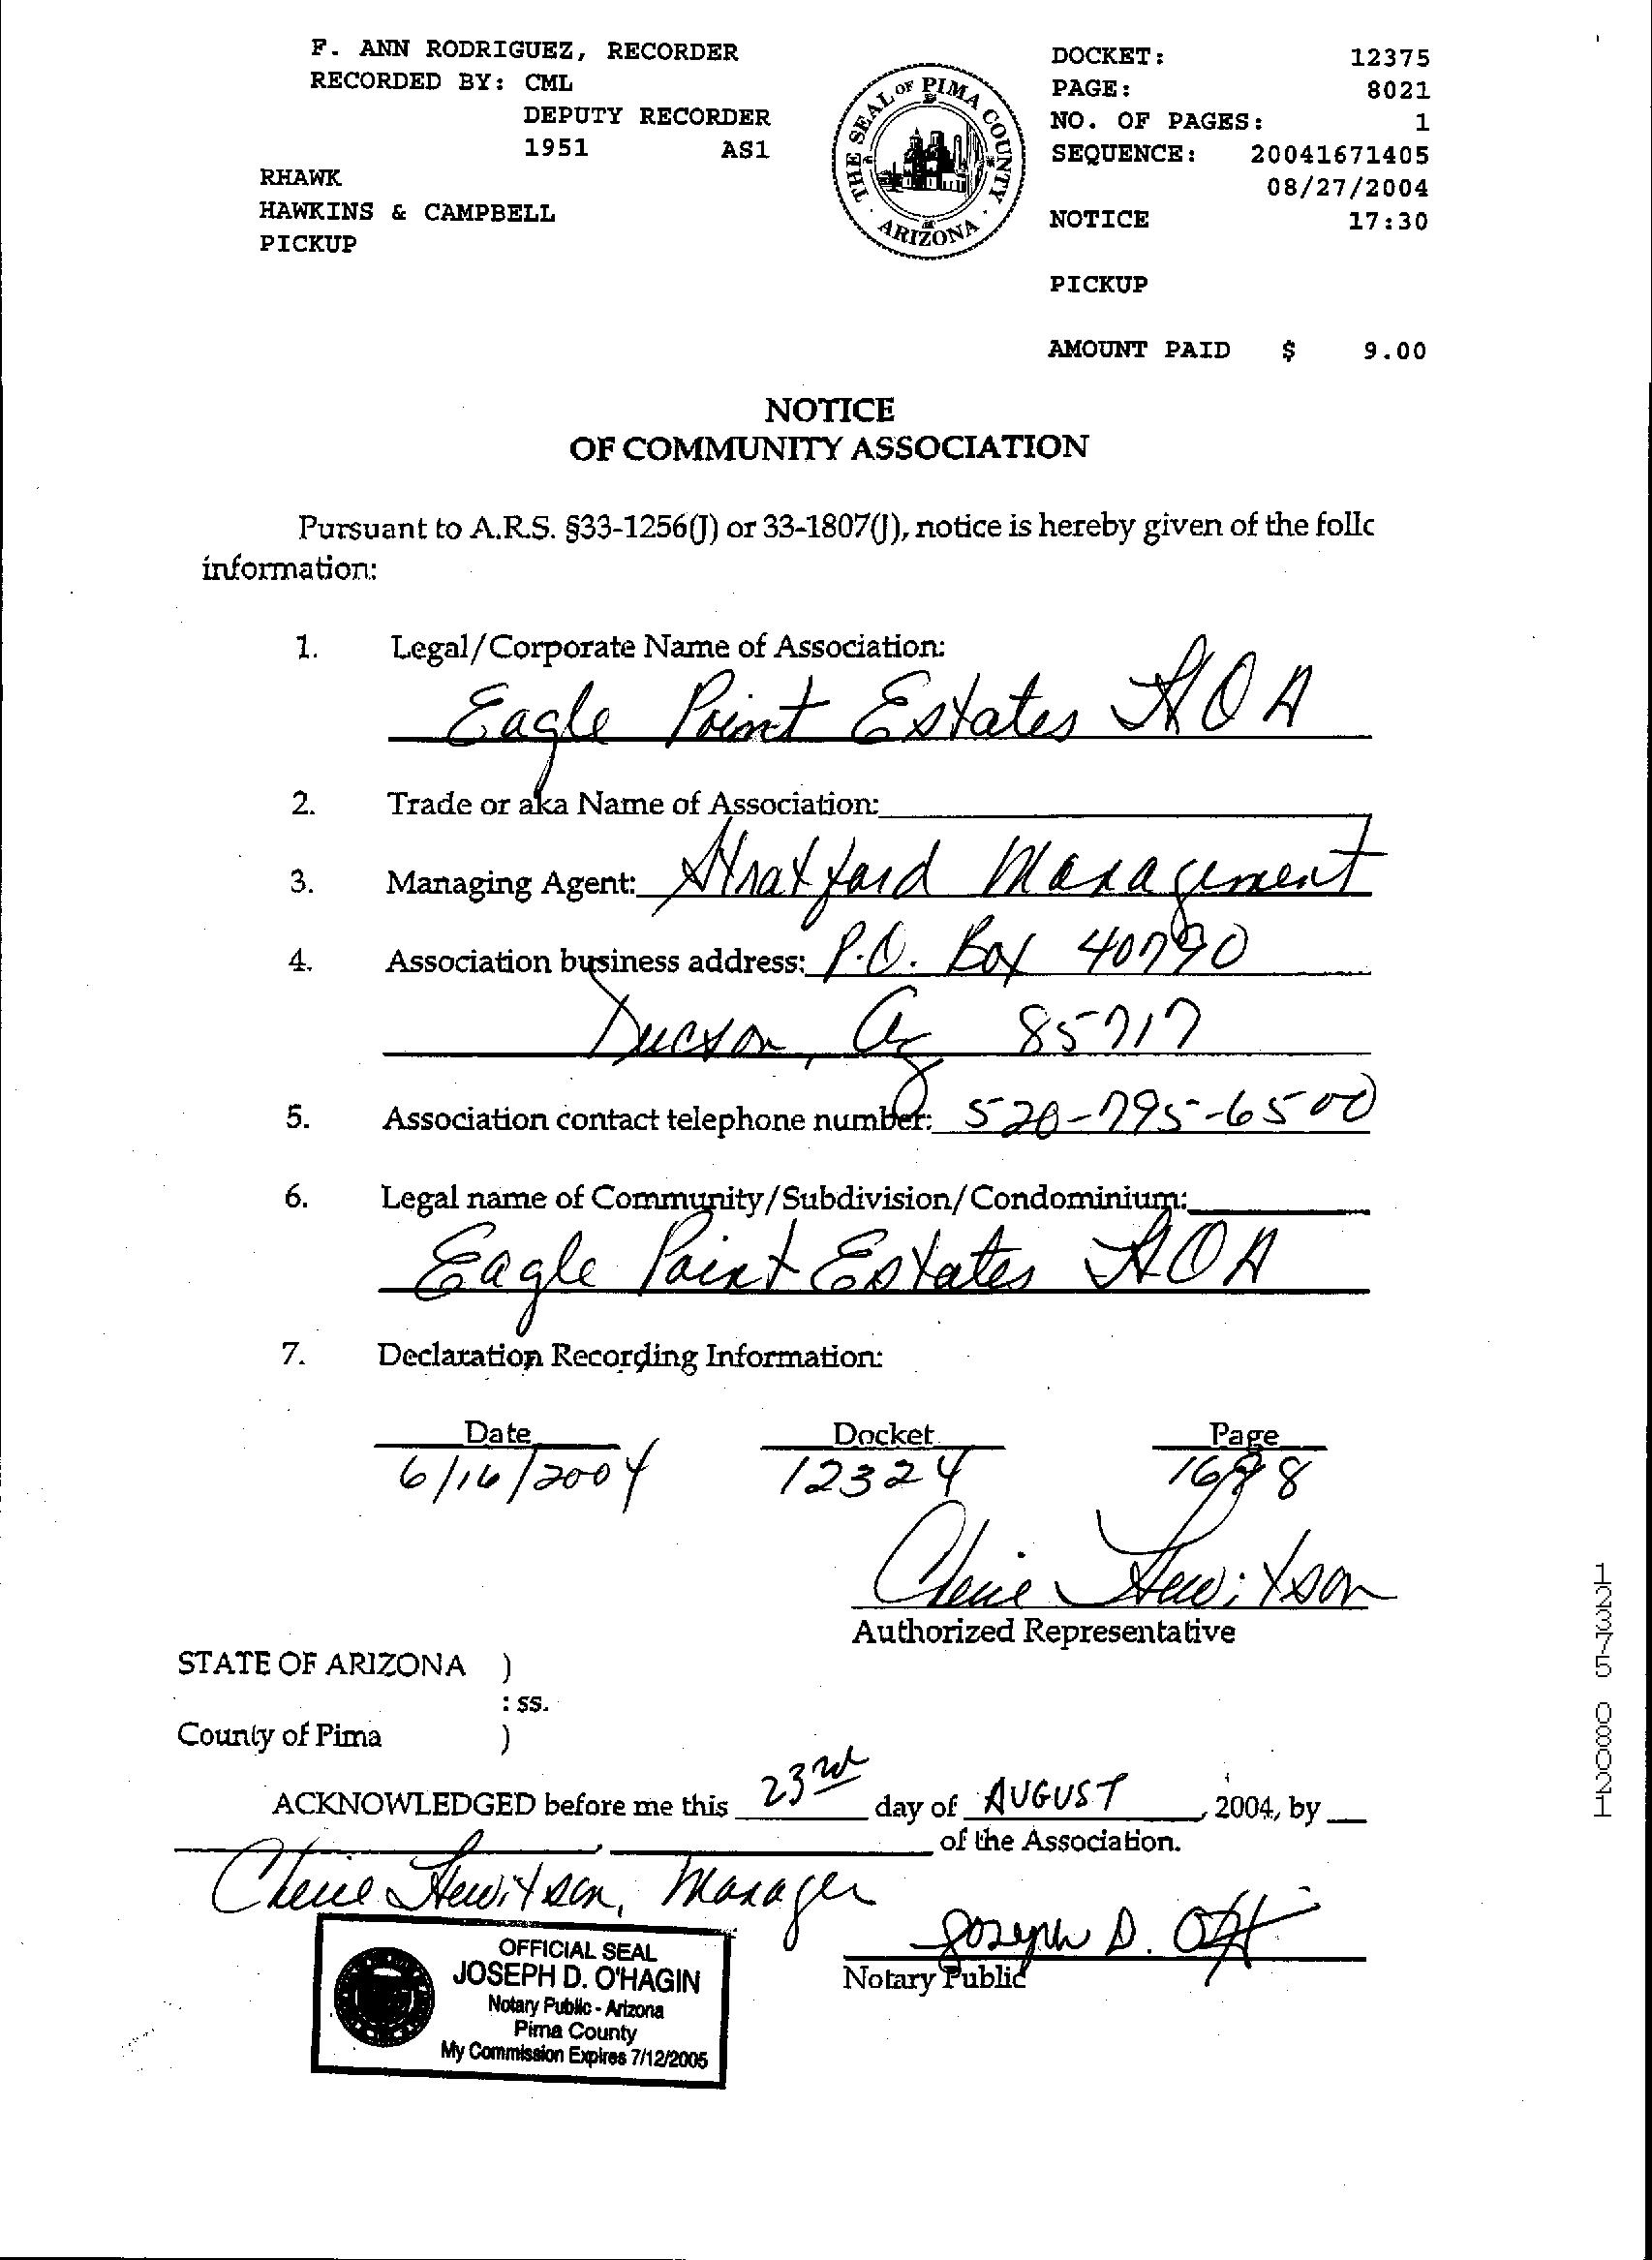 F. ANN RODRIGUEZ, RECORDER
RECORDED BY: CML
DEPUTY RECORDER
1951 AS1
RHAWK
HAWKINS & CAMPBELL
PICKUP
THE SEAL OF PIMA COUNTY
ARIZONA
DOCKET: 12375
PAGE: 8021
NO. OF PAGES: 1
SEQUENCE: 20041671405
08/27/2004
NOTICE 17:30
PICKUP
AMOUNT PAID $ 9.00
NOTICE
OF COMMUNITY ASSOCIATION
Pursuant to A.R.S. §33-1256(J) or 33-1807(J), notice is hereby given of the follc
information:
1. Legal/Corporate Name of Association:
Eagle Point Estates HOA
2. Trade or aka Name of Association:
3. Managing Agent: Stratford Management
4. Association business address: P.O. Box 40790
Tucson, Az 85717
5. Association contact telephone number: 520-795-6500
6. Legal name of Community/Subdivision/Condominium:
Eagle Point Estates HOA
7. Declaration Recording Information:
Date Docket Page
6/16/2004 12324
Cherie Hewitson
Authorized Representative
STATE OF ARIZONA )
: ss.
County of Pima )
ACKNOWLEDGED before me this 23rd day of AUGUST, 2004, by
of the Association.
Cherie Hewitson, Manager
Joseph D.
Notary Public
OFFICIAL SEAL
JOSEPH D. O'HAGIN
Notary Public - Arizona
Pima County
My Commission Expires 7/12/2005
12375 08021